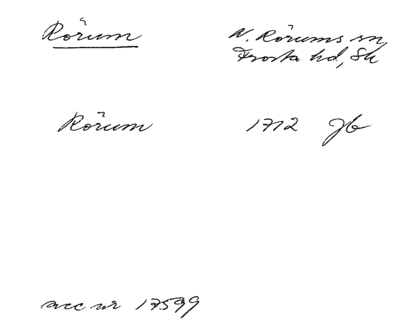 Rörum
N. Rörums sn,
Frosta hd, Sk
Rörum 1712 Jb
acc nr 17599